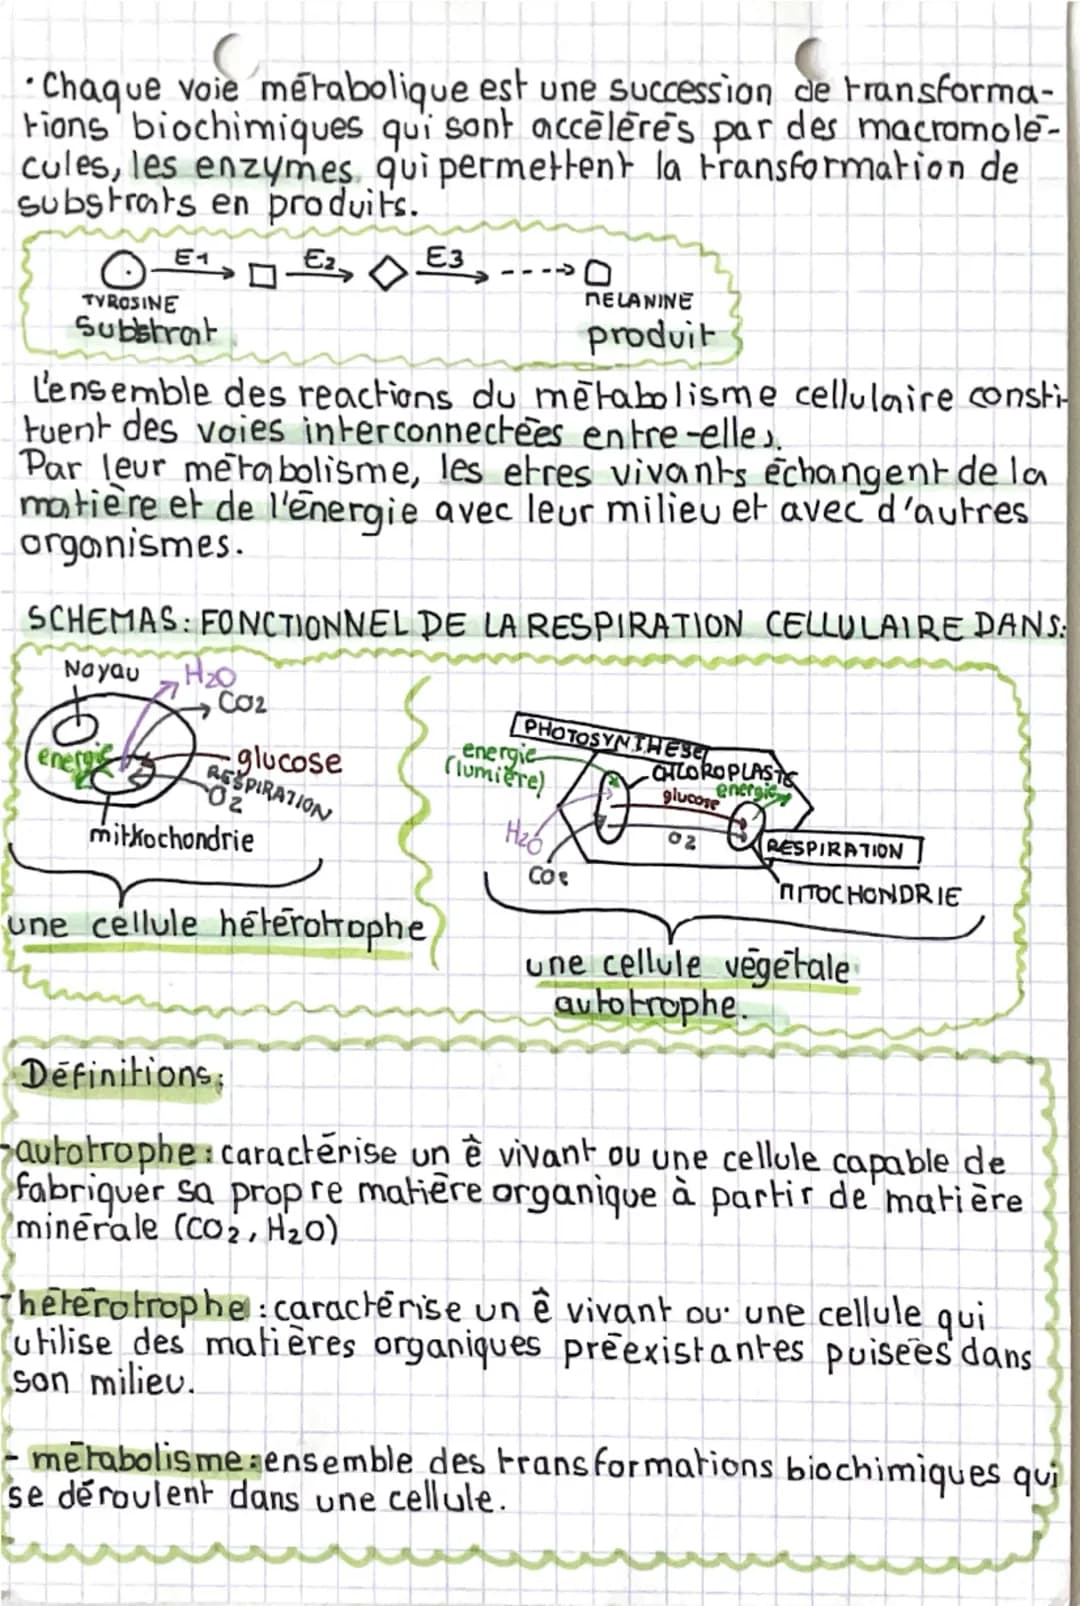 · Chaque voie métabolique est une succession de transforma-
tions biochimiques qui sont accélérés par des macromolé-
cules, les enzymes qui permettent la transformation de
substrats en produits.
E1 E2 E3
TYROSINE MELANINE
Substrat produit
L'ensemble des reactions du métabolisme cellulaire consti-
tuent des voies interconnectées entre-elles.
Par leur métabolisme, les etres vivants échangent de la
matière et de l'énergie avec leur milieu et avec d'autres
organismes.
SCHEMAS: FONCTIONNEL DE LA RESPIRATION CELLULAIRE DANS:
Noyau
H2O
CO2
energie
glucose
RESPIRATION
O2
mitkochondrie
une cellule hétérotrophe
PHOTOSYNTHESE
energie
(lumière)
CHLOROPLASTE
glucose
energie
H2O
O2
CO2
RESPIRATION
MITOCHONDRIE
une cellule végétale
autotrophe.
Définitions:
-autotrophe: caractérise un ê vivant ou une cellule capable de
fabriquer sa propre matière organique à partir de matière
minérale (CO2, H2O)
-hétérotrophe: caractérise un ê vivant ou une cellule qui
utilise des matières organiques préexistantes puisées dans
son milieu.
- métabolisme: ensemble des transformations biochimiques qui
se déroulent dans une cellule.